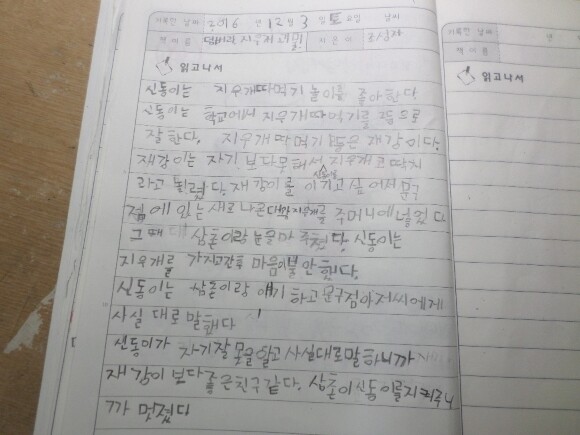 기록한 날짜 2016 년 12 월 3 일 토 요일 날씨
책 이름 지우개 지은이
읽고나서
신동이는 지우개따먹기 놀이를 좋아한다
신동이는 학교에서 지우개따먹기를 2등으로
잘한다. 지우개 따먹기 1등은 재강이다.
재강이는 자기 보다 못해서 지우개코딱지
라고 놀렸다. 재강이를 이기고 싶어서 문구
점에 있는 새로나온 대왕지우개를 주머니에 넣었다
그때 삼촌이랑 눈을마주쳤다. 신동이는
지우개를 가지고간후 마음이불안했다.
신동이는 삼촌이랑 얘기하고 문구점아저씨에게
사실대로말했다
신동이가 자기잘못을알고 사실대로말하니까
재강이보다 좋은친구같다. 삼촌이신동이를지켜주니
까 멋졌다
기록한 날짜 년
책 이름
읽고나서